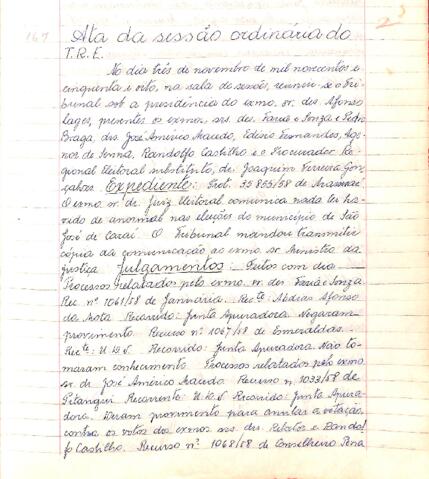 167
Ata da sessão ordinária do
T.R.E.
No dia três de novembro de mil novecentos e
cinquenta e oito, na sala de sessões, reuniu-se o Tri-
bunal sob a presidência do exmo. sr. des. Afonso
Lages, presentes os exmos. srs. des. Faria e Souza e Pedro
Braga, drs. José Américo Macedo, Edésio Fernandes, Age-
nor de Senna, Randolfo Castilho e o Procurador Re-
gional Eleitoral substituto, dr. Joaquim Ferreira Gon-
çalves. Expediente: Prot. 35 865/58 de Arassuaí
O exmo. sr. dr. Juiz Eleitoral comunica nada ter ha-
vido de anormal nas eleições do município de São
José de Caraí. O Tribunal mandou transmitir
cópia da comunicação ao exmo. sr. Ministro da
Justiça. Julgamentos: Feitos com dia
Processos relatados pelo exmo. sr. des. Faria e Souza
Rec. nº 1061/58 de Januária. Recte: Abdias Afonso
da Mota Recorrido: Junta Apuradora. Negaram
provimento. Recurso nº 1067/58 de Esmeraldas.
Recte: U.D.N. Recorrido: Junta Apuradora. Não to-
maram conhecimento. Processos relatados pelo exmo.
sr. dr. José Américo Macedo. Recurso n. 1033/58 de
Pitangui Recorrente: U.D.N Recorrido: Junta Apura-
dora. Deram provimento para anular a votação,
contra os votos dos exmos. srs. drs. Relator e Randol-
fo Castilho. Recurso nº 1068/58 de Conselheiro Pena